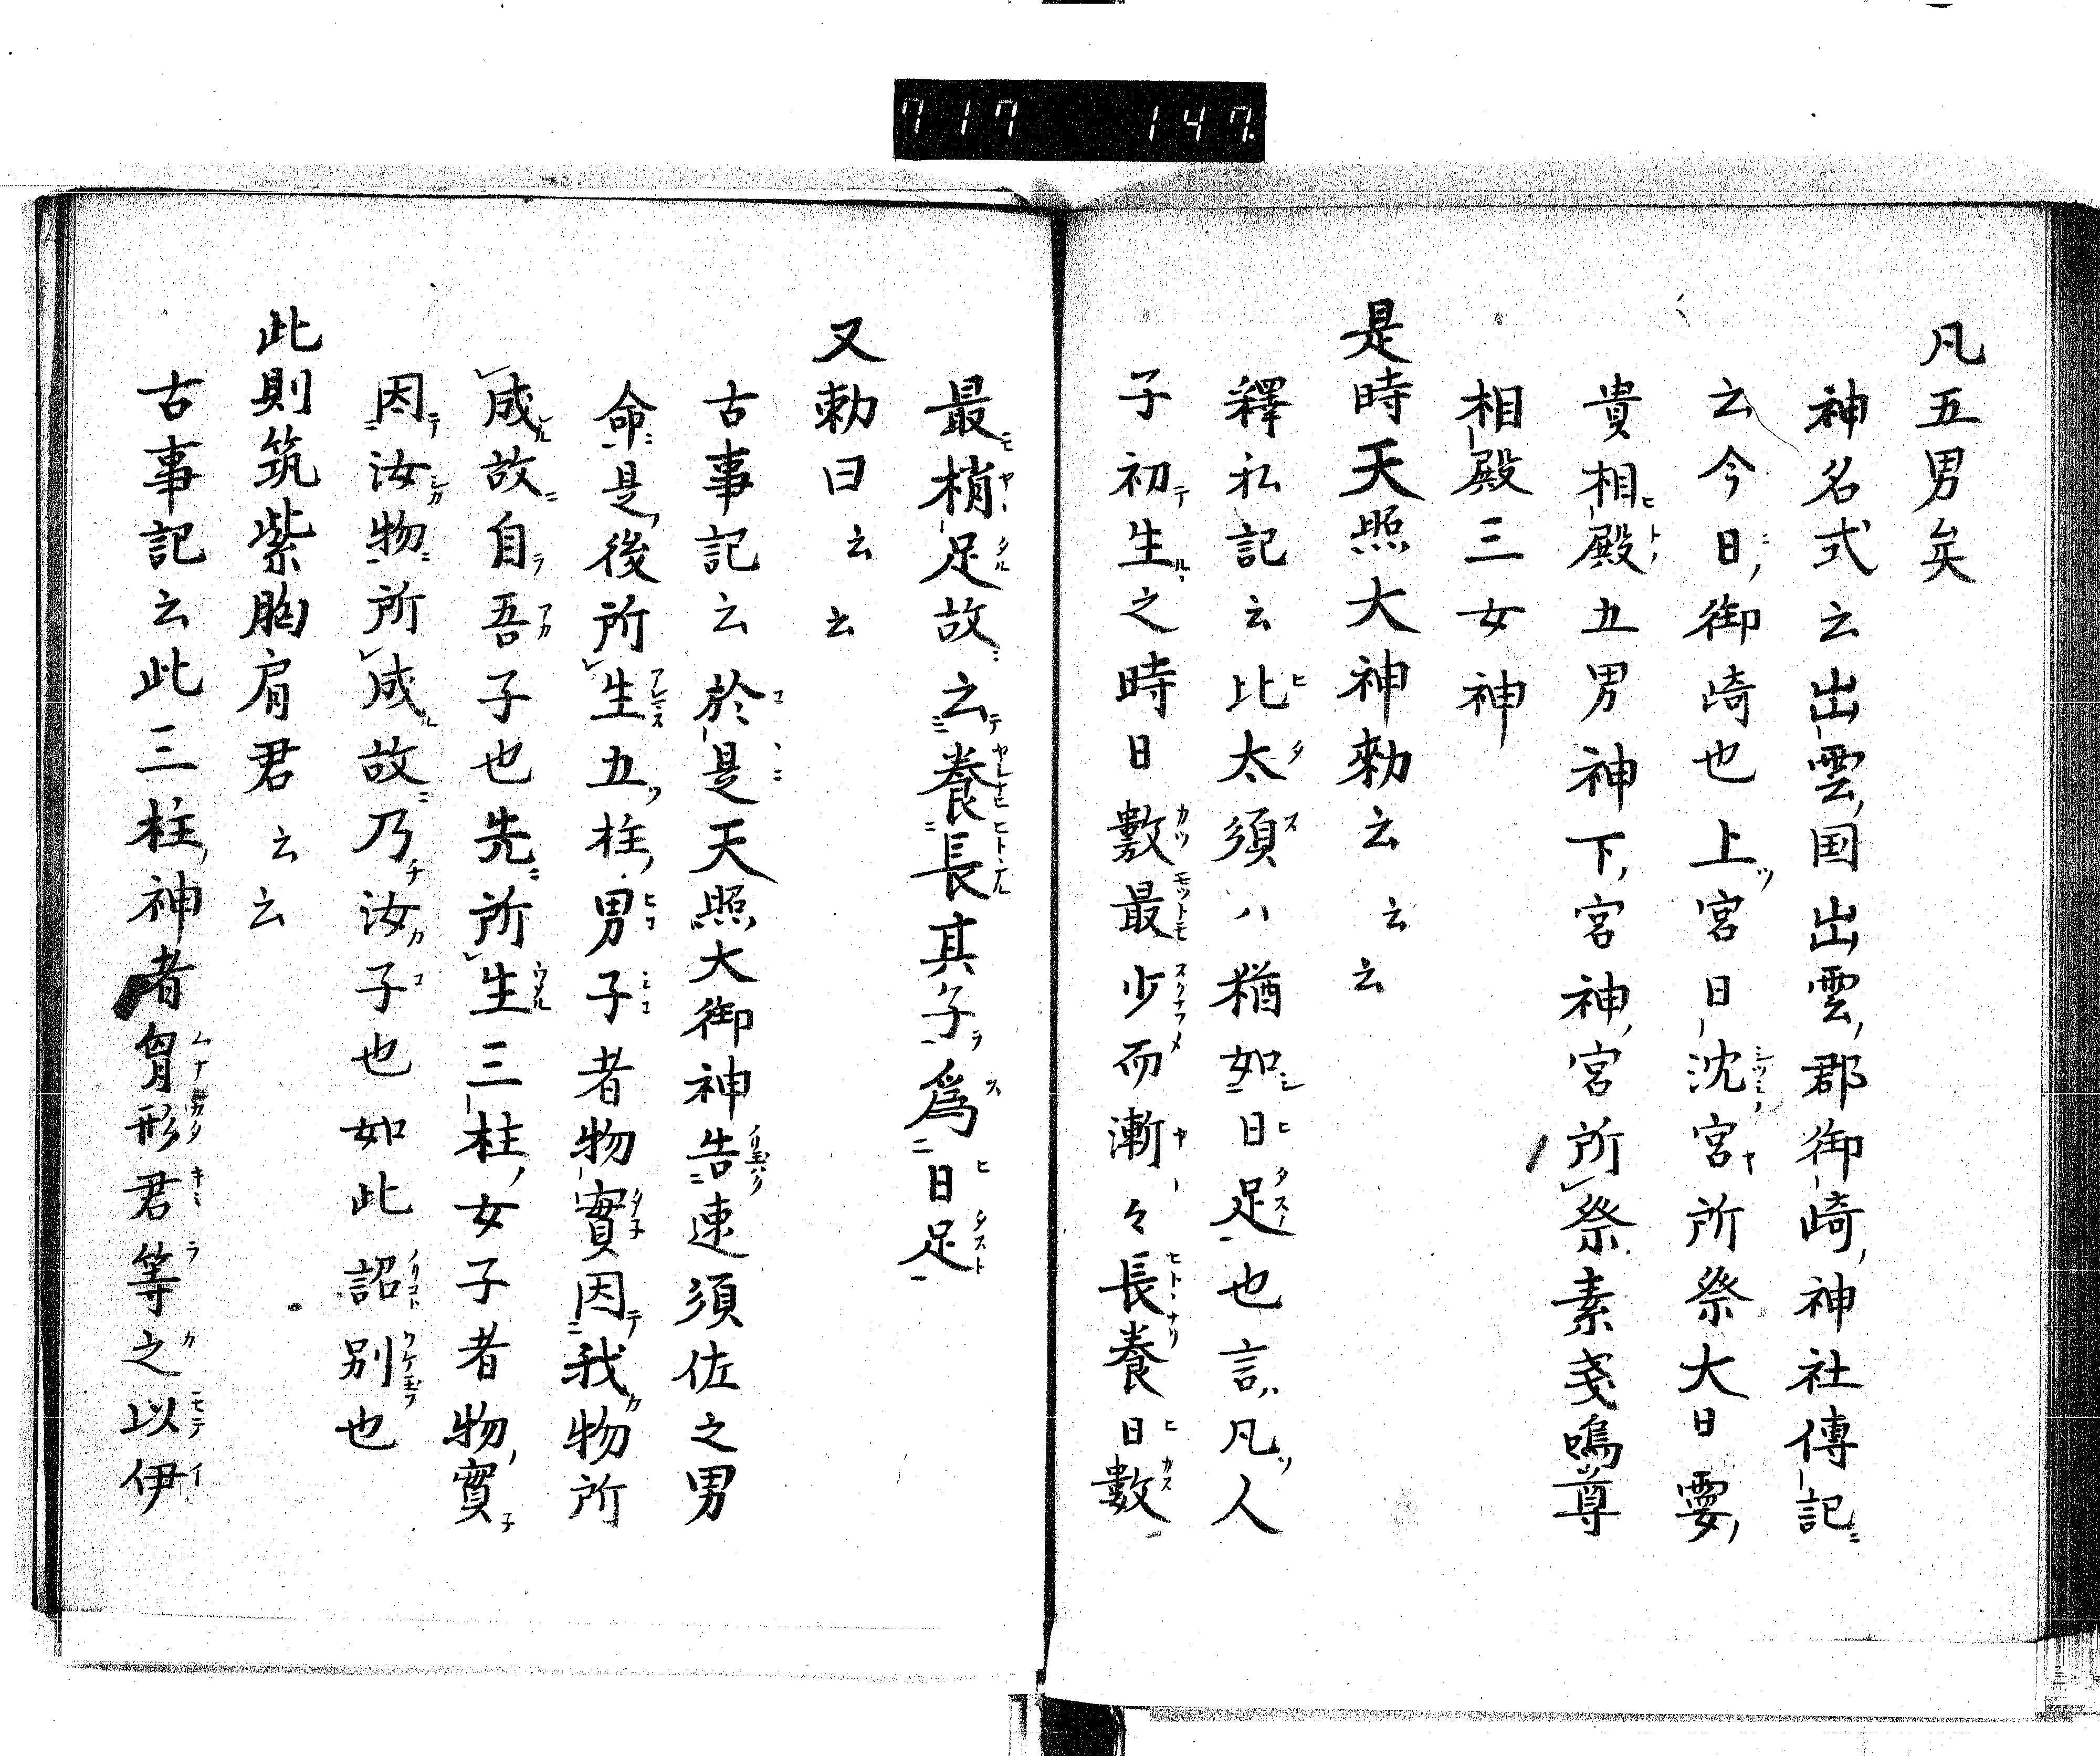 717 147
凡五男矣
神名式云出雲国出雲郡御崎神社傳記
云今日御崎也上宮日沈宮所祭大日孁
貴相殿五男神下宮神宮所祭素戔嗚尊
相殿三女神
是時天照大神勅云云云
釋私記云比太須ハ猶如日足也言凡人
子初生之時日數最少而漸々長養日數
最稍足故云養長其子為日足
又勅曰云云
古事記云於是天照大御神告速須佐之男
命是後所生五柱男子者物實因我物所
成故自吾子也先所生三柱女子者物實
因汝物所成故乃汝子也如此詔別也
此則筑紫胸肩君云云
古事記云此三柱神者胷形君等之以伊